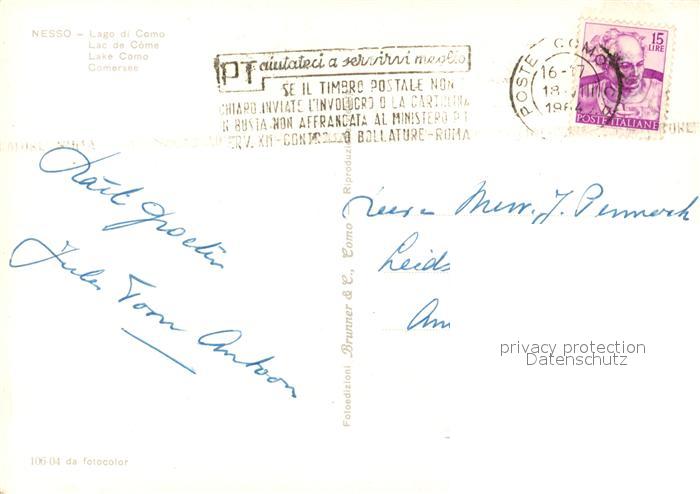 NESSO - Lago di Como
Lac de Côme
Lake Como
Comersee
PT aiutateci a servirvi meglio
SE IL TIMBRO POSTALE NON È
CHIARO INVIATE L'INVOLUCRO O LA CARTOLINA
IN BUSTA NON AFFRANCATA AL MINISTERO P.T.
SERV. XII-CONTROLLO BOLLATURE-ROMA
POSTE COMO
16-17
18
1964
15
LIRE
POSTE ITALIANE
Jules Toon Antoon
J.
Leids
Am
privacy protection
Datenschutz
Fotoedizioni Brunner & C., Como
106-04 da fotocolor